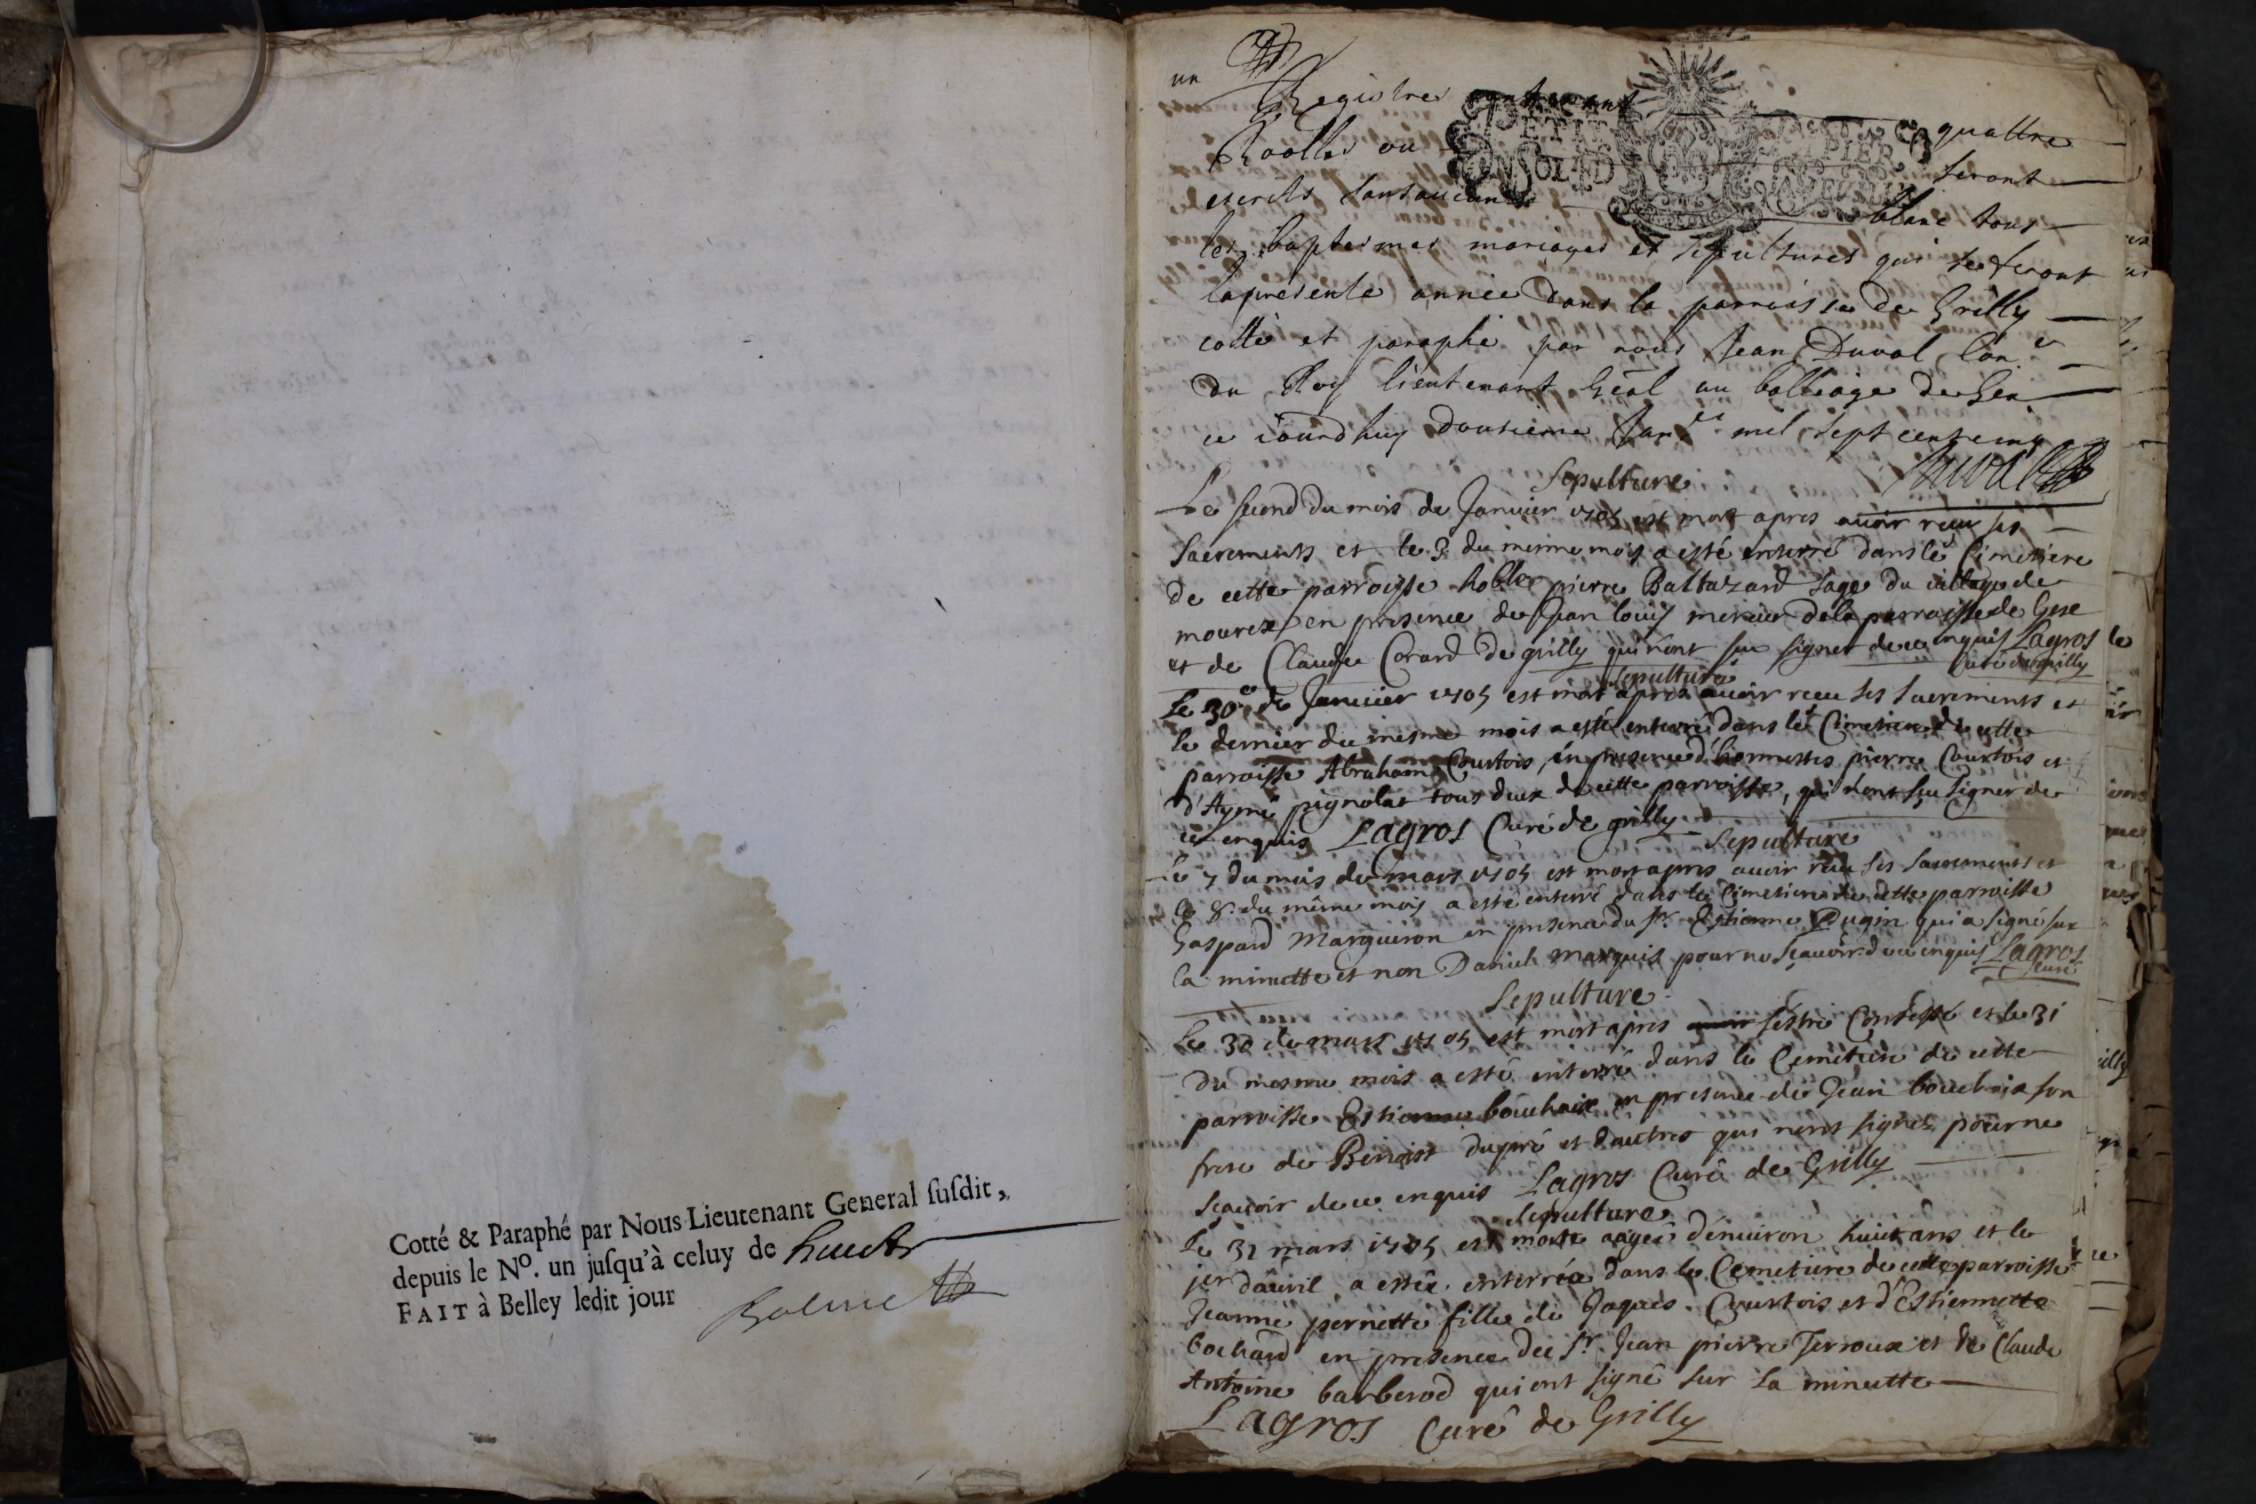 Cotté & Paraphé par Nous Lieutenant General susdit,
depuis le No. un jusqu'à celuy de huict
FAIT à Belley ledit jour
un
Registre contenant quattre
Roolles ou seront
escrits sans aucun blanc tous
les baptesmes mariages et sepultures qui se feront
la presente année dans la parroisse de Grilly
cotté et paraphé par nous Jean Duval Con.er
du Roy lieutenant Gñal au balliage de Gex
ce jourdhuy dousieme Janer mil sept cents cinq
Duval
PETIT PAPIER
Sepulture
Le second du mois de Janvier 1705 est mort apres avoir receu ses
sacrements et le 3 du mesme mois a esté enterré dans le Cimetiere
de cette parroisse noble pierre Baltazard sage du village de
mourex en presence de Jean louis mercier de la parroisse de Gex
et de Claude Corard de grilly qui n'ont sceu signer de ce enquis Lagros
Curé de grilly
Sepulture
Le 30e de Janvier 1705 est mort apres avoir receu ses sacrements et
le dernier du mesme mois a esté enterré dans le Cimetiere de cette
parroisse Abraham Courtois, en presence d'honnestes pierre Courtois et
d'Aymé pignolat tous deux de cette parroisse, qui n'ont sçu signer de
ce enquis Lagros Curé de grilly
Sepulture
Le 7 du mois de mars 1705 est mort apres avoir receu ses sacrements et
le 8. du même mois a esté enterré dans le Cimetiere de cette parroisse
Gaspard Margueron en presence du Sr. Estienne Dugin qui a signé sur
la minutte et non Daniel marquis pour ne sçavoir de ce enquis Lagros
Curé
Sepulture
Le 30 de mars 1705 est mort apres s'estre Confessé et le 31
du mesme mois a esté enterré dans le Cemetiere de cette
parroisse Estienne bouchaix en presence de Jean bouchaix son
frere de Benoist dupré et d'autres qui n'ont signés pour ne
sçavoir de ce enquis Lagros Curé de Grilly
Sepulture
Le 31 mars 1705 est morte aagée d'environ huict ans et le
jer d'auvril a estée enterrée dans le Cemetiere de cette parroisse
Jeanne pernette fille de Jaques Courtois et d'Estiennette
bochard en presence de Sr. Jean pierre Terroux et de Claude
Antoine barberod qui ont signé sur la minutte
Lagros Curé de Grilly